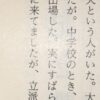 夫という人がいた。大
たが。中学校のとき、
出場した。実にすばら
に来てましたが、立派